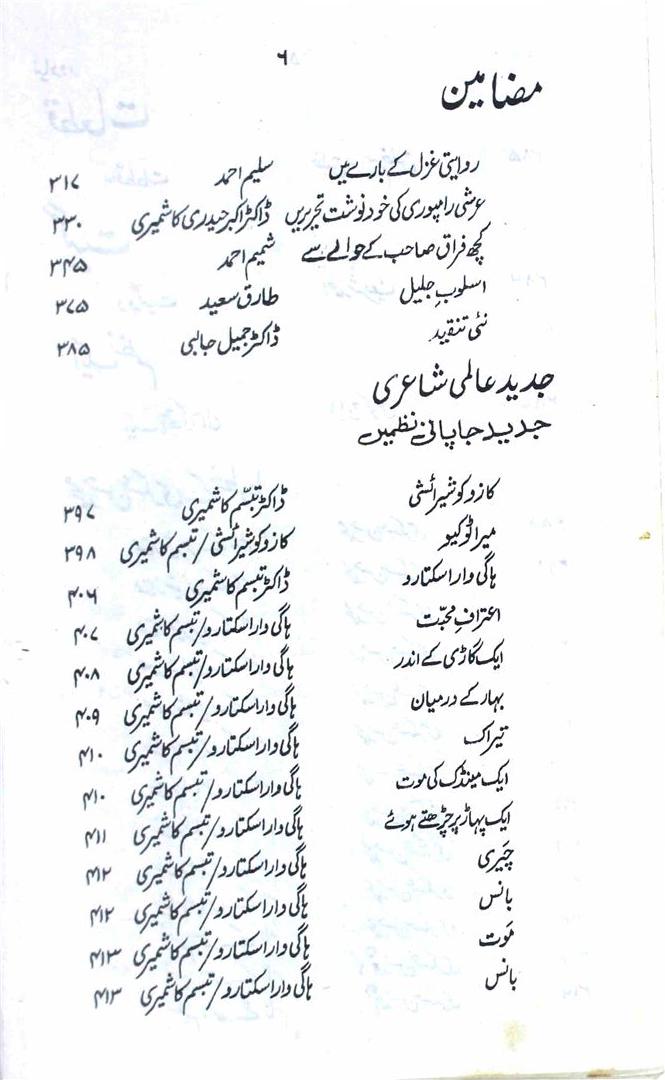 ۶
مضامین
روایتی غزل کے بارے میں سلیم احمد ۳۱۷
عرشی رامپوری کی خود نوشت تحریریں ڈاکٹر اکبر حیدری کاشمیری ۳۳۰
کچھ فراق صاحب کے حوالے سے شمیم احمد ۳۴۵
اسلوبِ جلیل طارق سعید ۳۷۵
نئی تنقید ڈاکٹر جمیل جالبی ۳۸۵
جدید عالمی شاعری
جدید جاپانی نظمیں
کازوکو شیرائشی ڈاکٹر تبسّم کاشمیری ۳۹۷
میرا ٹوکیو کازوکو شیرائشی / تبسم کاشمیری ۳۹۸
ہاگی وارا سکتارو ڈاکٹر تبسم کاشمیری ۴۰۶
اعترافِ محبّت ہاگی وارا سکتارو / تبسم کاشمیری ۴۰۷
ایک گاڑی کے اندر ہاگی وارا سکتارو / تبسم کاشمیری ۴۰۸
بہار کے درمیان ہاگی وارا سکتارو / تبسم کاشمیری ۴۰۹
تیراک ہاگی وارا سکتارو / تبسم کاشمیری ۴۱۰
ایک مینڈک کی موت ہاگی وارا سکتارو / تبسم کاشمیری ۴۱۰
ایک پہاڑ پر چڑھتے ہوئے ہاگی وارا سکتارو / تبسم کاشمیری ۴۱۱
چَیری ہاگی وارا سکتارو / تبسم کاشمیری ۴۱۲
بانس ہاگی وارا سکتارو / تبسم کاشمیری ۴۱۲
مَوت ہاگی وارا سکتارو / تبسم کاشمیری ۴۱۳
بانس ہاگی وارا سکتارو / تبسم کاشمیری ۴۱۳